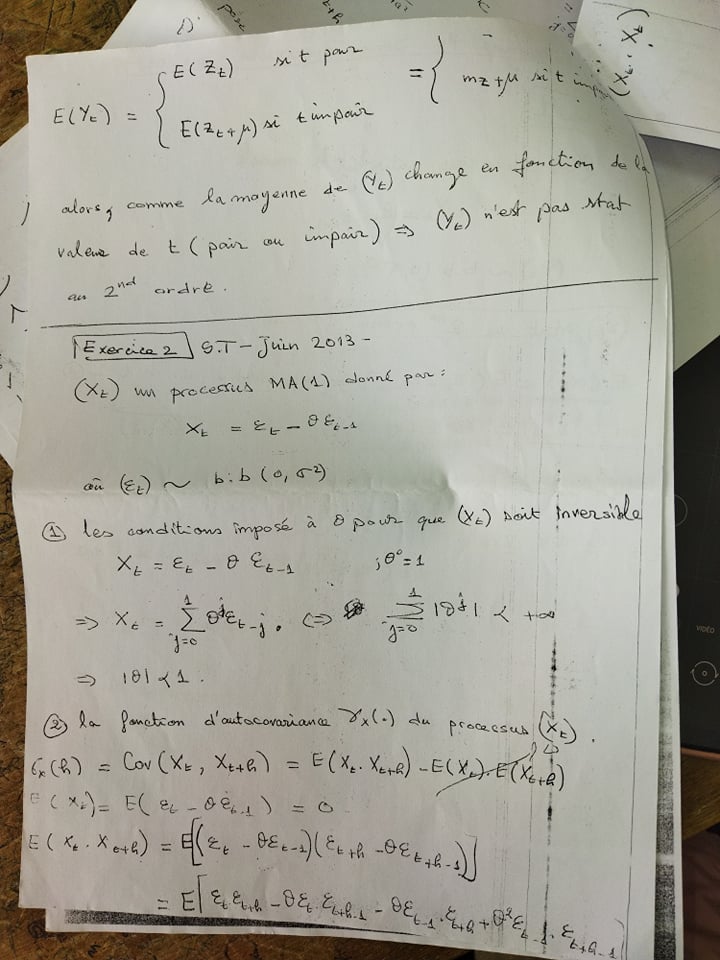 1)
pose
t+h
(X_t, X_z)
E(Y_t) = { E(Z_t) si t pair = { -
E(Z_t+μ) si t impair mz+μ si t imp
alors, comme la moyenne de (Y_t) change en fonction de la
valeur de t (pair ou impair) ⇒ (Y_t) n'est pas stat
au 2nd ordre.
Exercice 2 S.T - Juin 2013 -
(X_t) un processus MA(1) donné par :
X_t = ε_t - θ ε_{t-1}
où (ε_t) ~ b.b (0, σ²)
① les conditions imposé à θ pour que (X_t) soit inversible
X_t = ε_t - θ ε_{t-1} ; θ° = 1
⇒ X_t = Σ_{j=0}^{1} θ^j ε_{t-j}. ⇔ Σ_{j=0}^{1} |θ^j| < +∞
⇒ |θ| < 1.
② la fonction d'autocovariance γ_x(.) du processus (X_t).
σ_x(h) = Cov(X_t, X_{t+h}) = E(X_t.X_{t+h}) - E(X_t).E(X_{t+h})
0
E(X_t) = E(ε_t - θε_{t-1}) = 0
E(X_t.X_{t+h}) = E[(ε_t - θε_{t-1})(ε_{t+h} - θε_{t+h-1})]
= E[ε_t ε_{t+h} - θε_t.ε_{t+h-1} - θε_{t-1}.ε_{t+h} + θ²ε_{t-1}.ε_{t+h-1}]
VIDEO